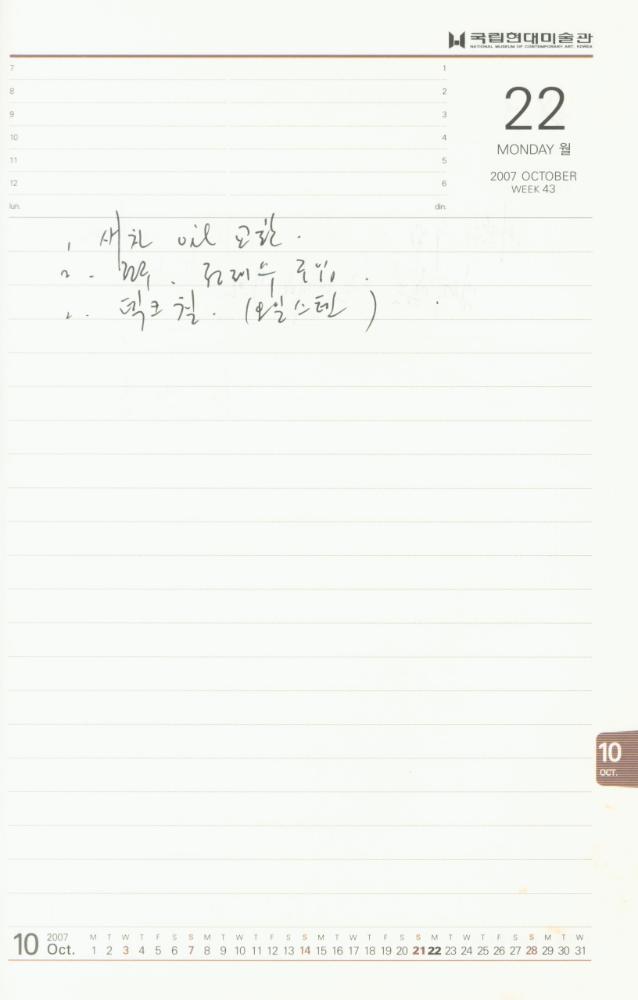 국립현대미술관
NATIONAL MUSEUM OF CONTEMPORARY ART, KOREA
7 1
8 2
9 3
10 4
11 5
12 6
lun. din.
22
MONDAY 월
2007 OCTOBER
WEEK 43
1. 새차 oil 교환.
2.
2. 떽크 칠. (오일스텐)
10
OCT.
10 2007 Oct.
M T W T F S S M T W T F S S M T W T F S S M T W T F S S M T W
1 2 3 4 5 6 7 8 9 10 11 12 13 14 15 16 17 18 19 20 21 22 23 24 25 26 27 28 29 30 31